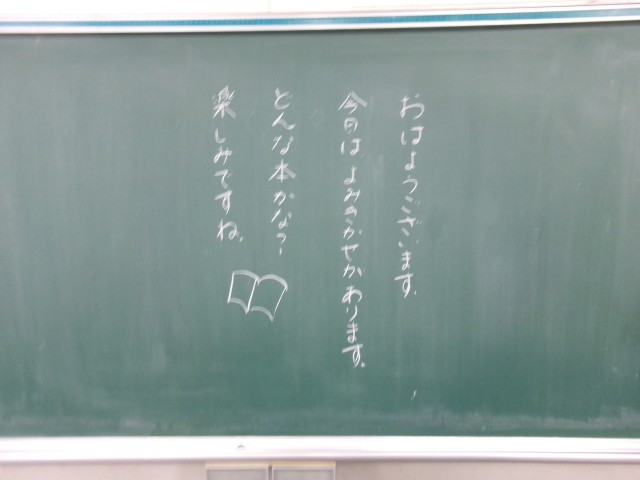 おはようございます。
今日は、よみきかせがあります。
どんな本かな?
楽しみですね。